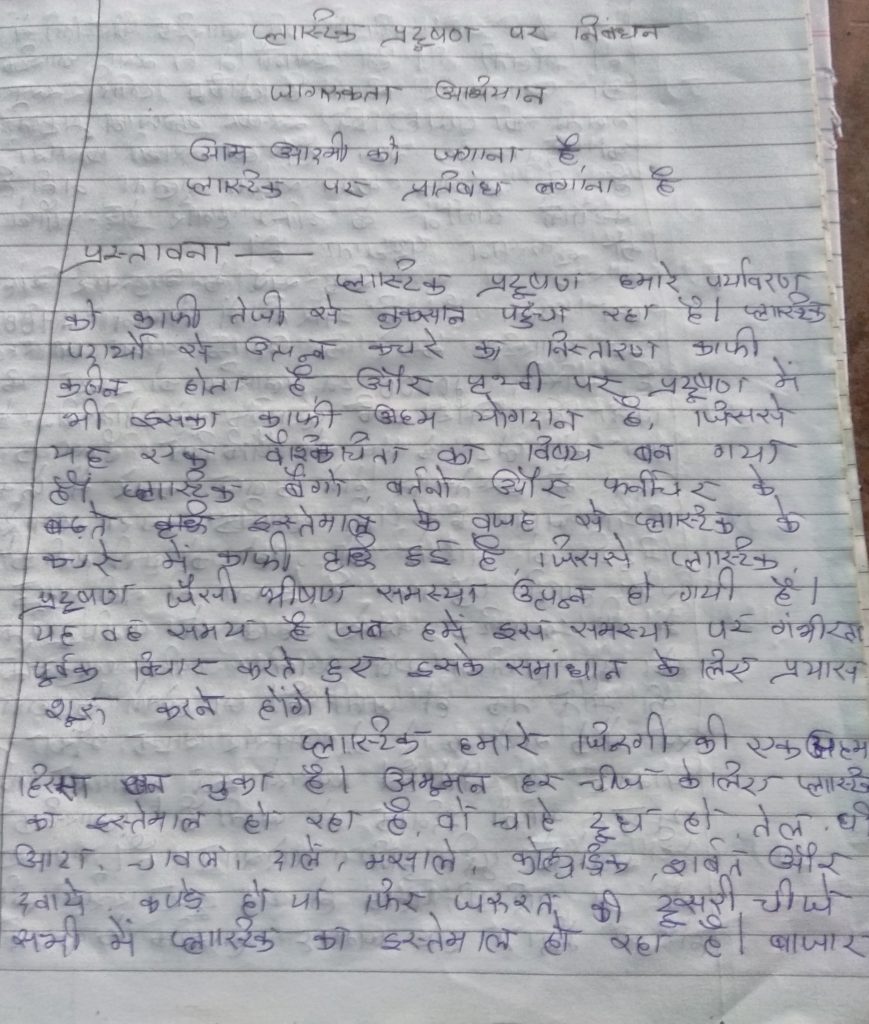 प्लास्टिक प्रदूषण पर निबंधन
जागरुकता अभियान
आम आदमी को जगाना है
प्लास्टिक पर प्रतिबंध लगाना है
प्रस्तावना —
प्लास्टिक प्रदूषण हमारे पर्यावरण
को काफी तेजी से नुकसान पहुँचा रहा है। प्लास्टिक
पदार्थो से उत्पन्न कचरे का निस्तारण काफी
कठीन होता है, और पृथ्वी पर प्रदूषण में
भी इसका काफी अहम योगदान है, जिससे
यह एक वैश्विक चिंता का विषय बन गया
है। प्लास्टिक बैगो, बर्तनो और फर्नीचर के
बढते इस्तेमाल के वजह से प्लास्टिक के
कचरे में काफी वृद्धि हुई है, जिससे प्लास्टिक
प्रदूषण जैसी भीषण समस्या उत्पन्न हो गयी है।
यह वह समय है जब हमें इस समस्या पर गंभीरता
पूर्वक विचार करते हुए इसके समाधान के लिए प्रयास
शुरू करने होंगे।
प्लास्टिक हमारे जिन्दगी की एक अहम
हिस्सा बन चुका है। अमूमन हर चीज के लिए प्लास्टिक
का इस्तेमाल हो रहा है, वो चाहे दूध हो, तेल, घी
आटा, चावल, दालें, मसाले, कोल्ड्रिंक, शर्बत और
दवाये, कपडे हो या फिर जरूरत की दूसरी चीजे
सभी में प्लास्टिक का इस्तेमाल हो रहा है। बाजार